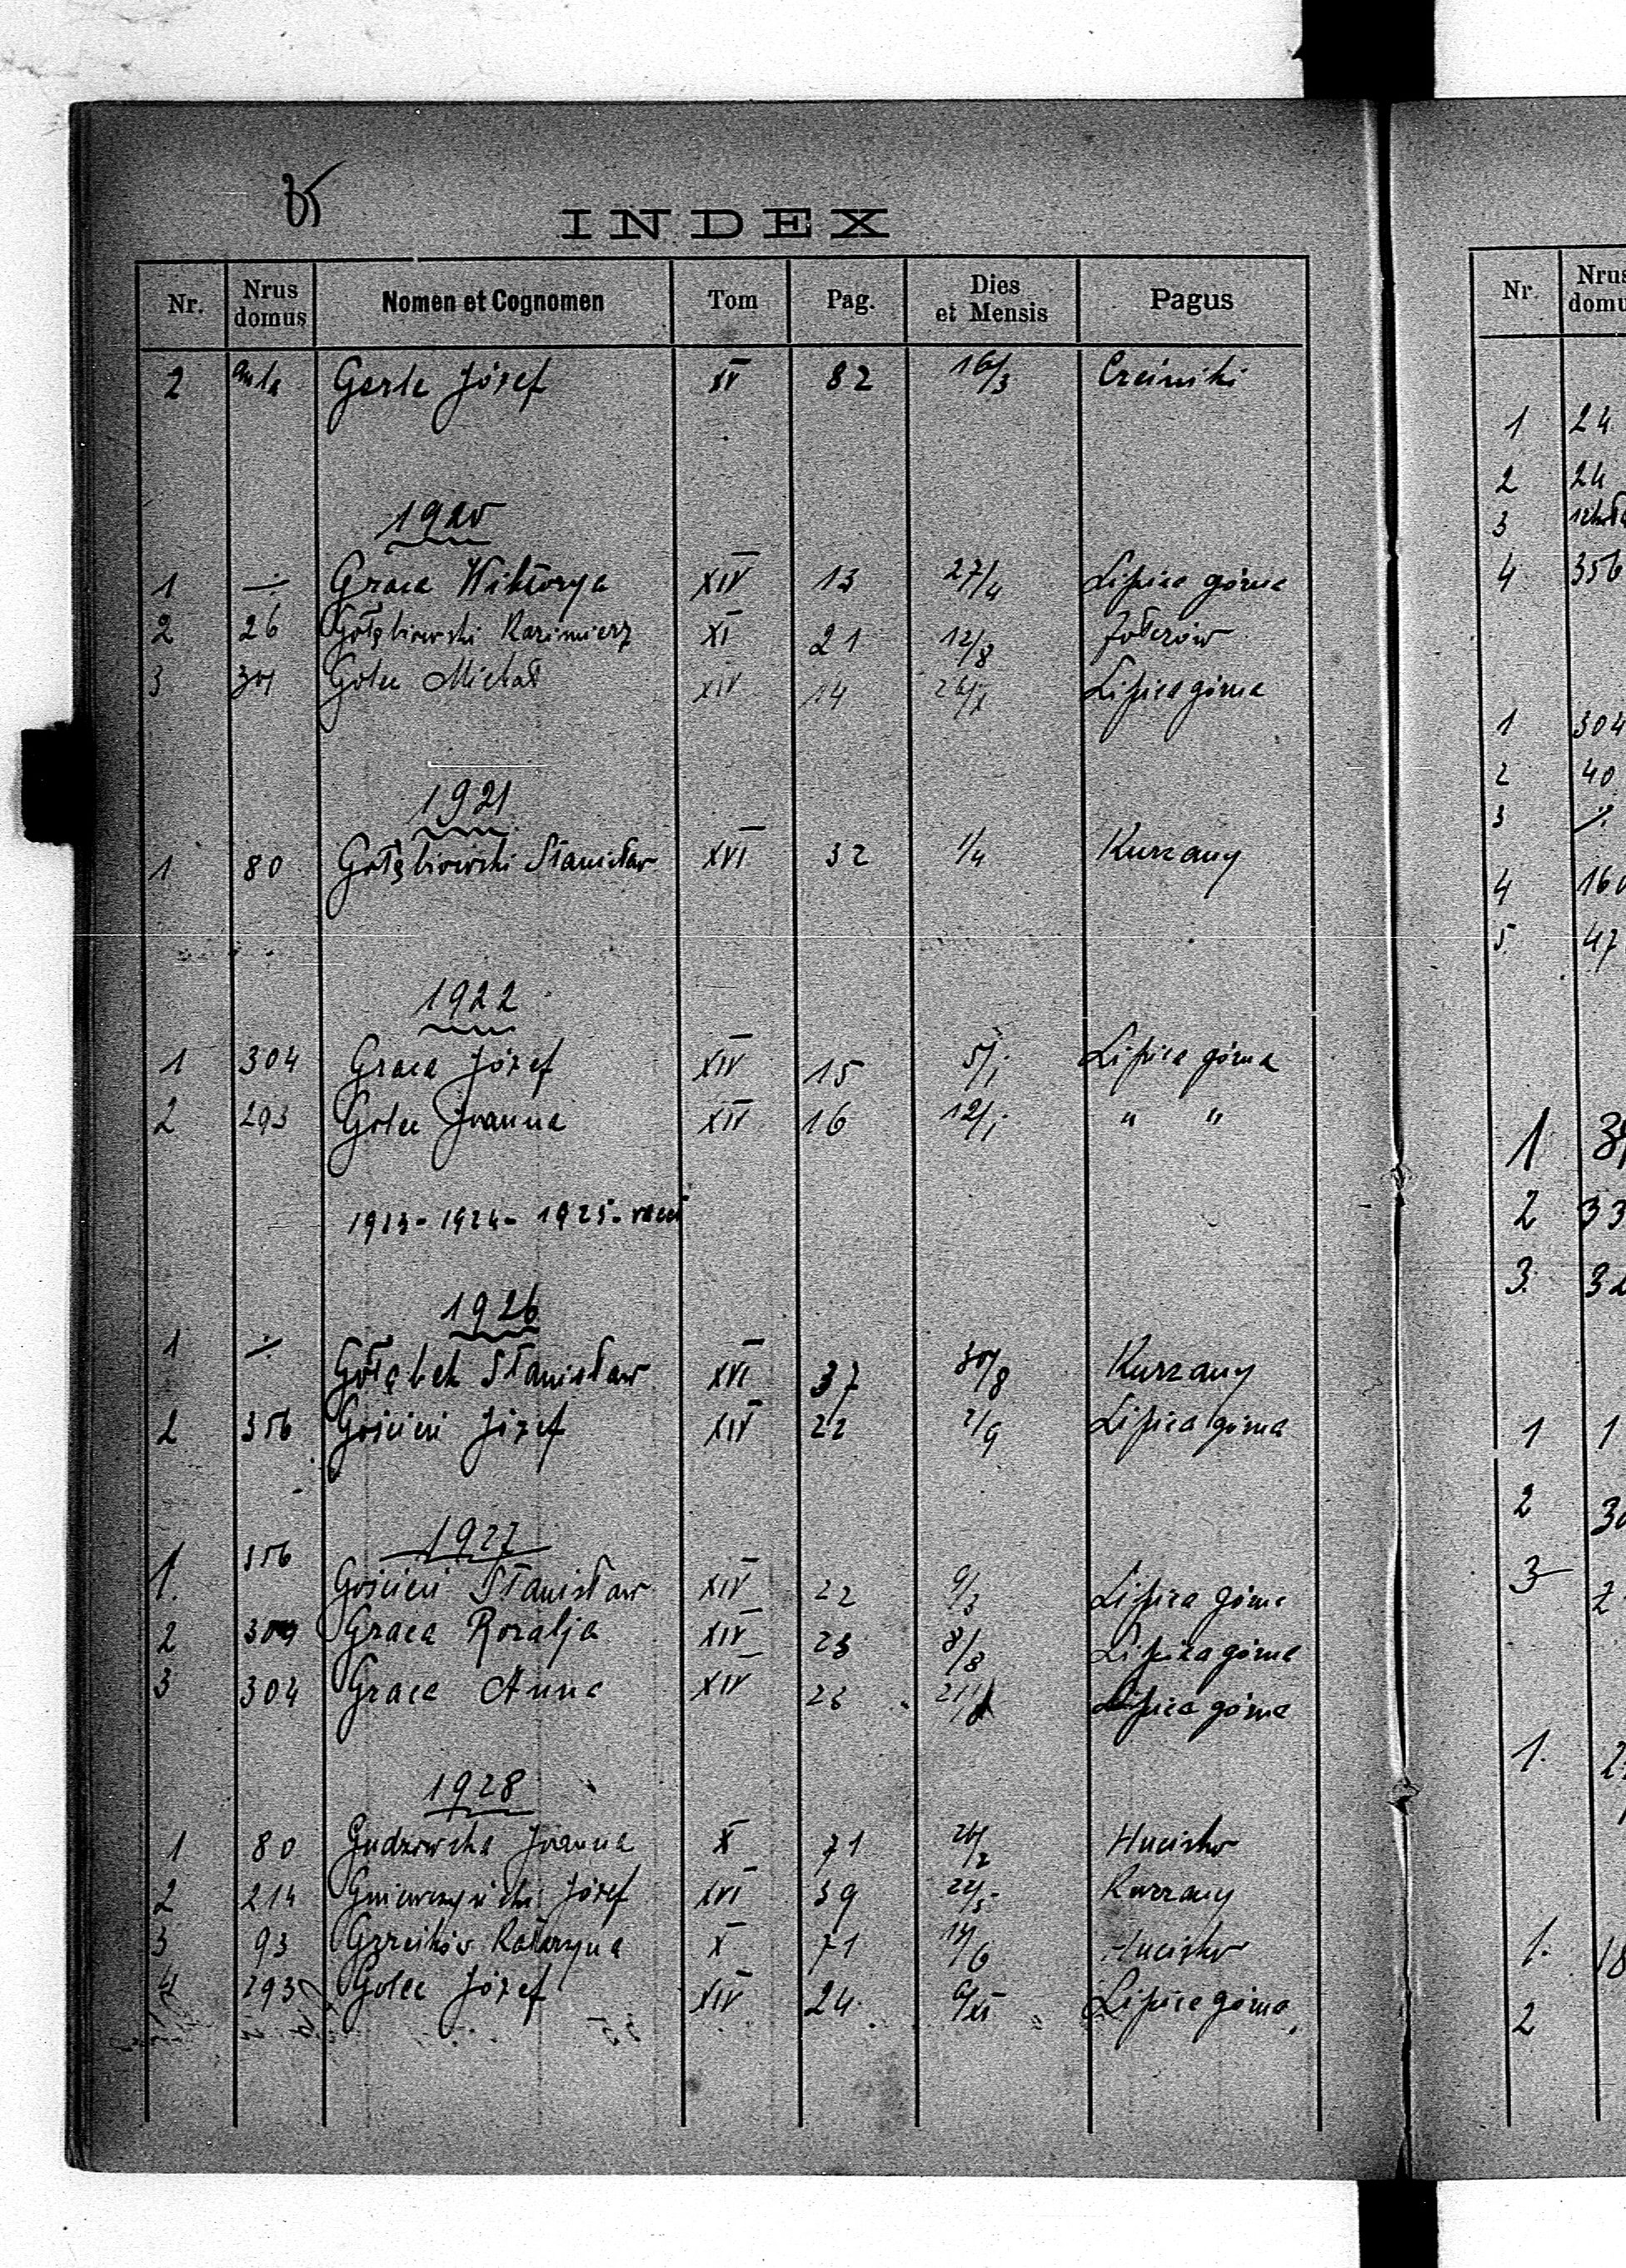 INDEX
Nr. Nrus domus Nomen et Cognomen Tom Pag. Dies et Mensis Pagus
2 Józef XV 82 16/3
1920
1 Graca Wiktorya XIV 13 27/4 Lipica górna
2 26 Gołębiowski Kazimierz XI 21 12/8
3 Golec Michał XIV 14 Lipica górna
1921
1 80 Gołębiowski Stanisław XVI 32 1/4 Kurzany
1922
1 304 Graca Józef XIV 15 5/1 Lipica górna
2 293 Golec Joanna XIV 16 12/1 " "
1923 - 1924 - 1925 -
1926
1 ./. Gołębek Stanisław XVI 37 30/8 Kurzany
2 356 Gościcki Józef XIV 22 2/9 Lipica górna
1927
1. 356 Stanisław XIV 22 9/3 Lipica górna
2 304 Graca Rozalja XIV 23 8/8 Lipica górna
3 304 Graca Anna XIV 23 Lipica górna
1928
1 80 Gudzowska Joanna X 71 26/2 Hucisko
2 214 Józef XVI 39 22/5 Kurzany
3 93 Katarzyna X 71 Hucisko
4 293 Golec Józef XIV 24 6/XI Lipica górna
Nr. Nrus domu
1 24
2 24
3
4 356
1 304
2 40
3 ./.
4 160
5. 47
1
2 33
3. 32
1 1
2 30
3 2
1. 2
1. 18
2